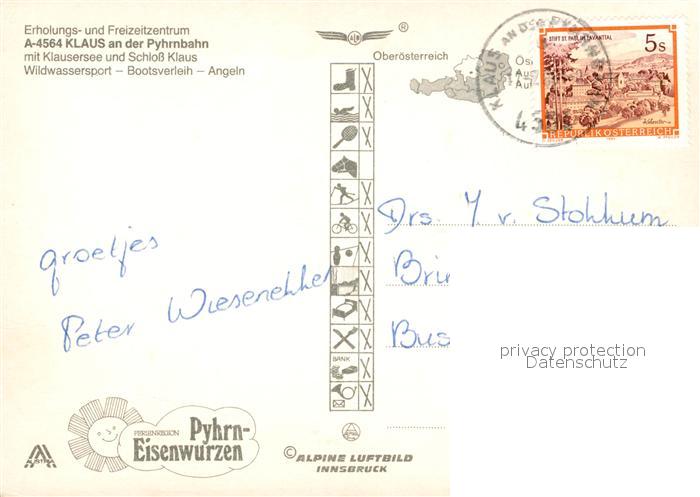 Erholungs- und Freizeitzentrum
A-4564 KLAUS an der Pyhrnbahn
mit Klausersee und Schloß Klaus
Wildwassersport – Bootsverleih – Angeln
®
Oberösterreich
KLAUS AN DER PYHRN
STIFT ST. PAUL IM LAVANTTAL
5s
REPUBLIK ÖSTERREICH
groetjes
Peter Wiesenekker
Drs. Y. v. Stokkum
BANK
FERIENREGION
Pyhrn-
Eisenwurzen
AUSTRIA
© ALPINE LUFTBILD
INNSBRUCK
privacy protection
Datenschutz